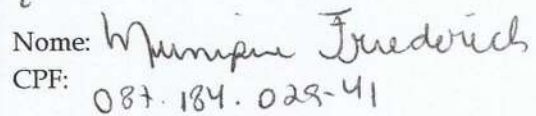 Nome: Munique Friederich
CPF:
087.184.029-41